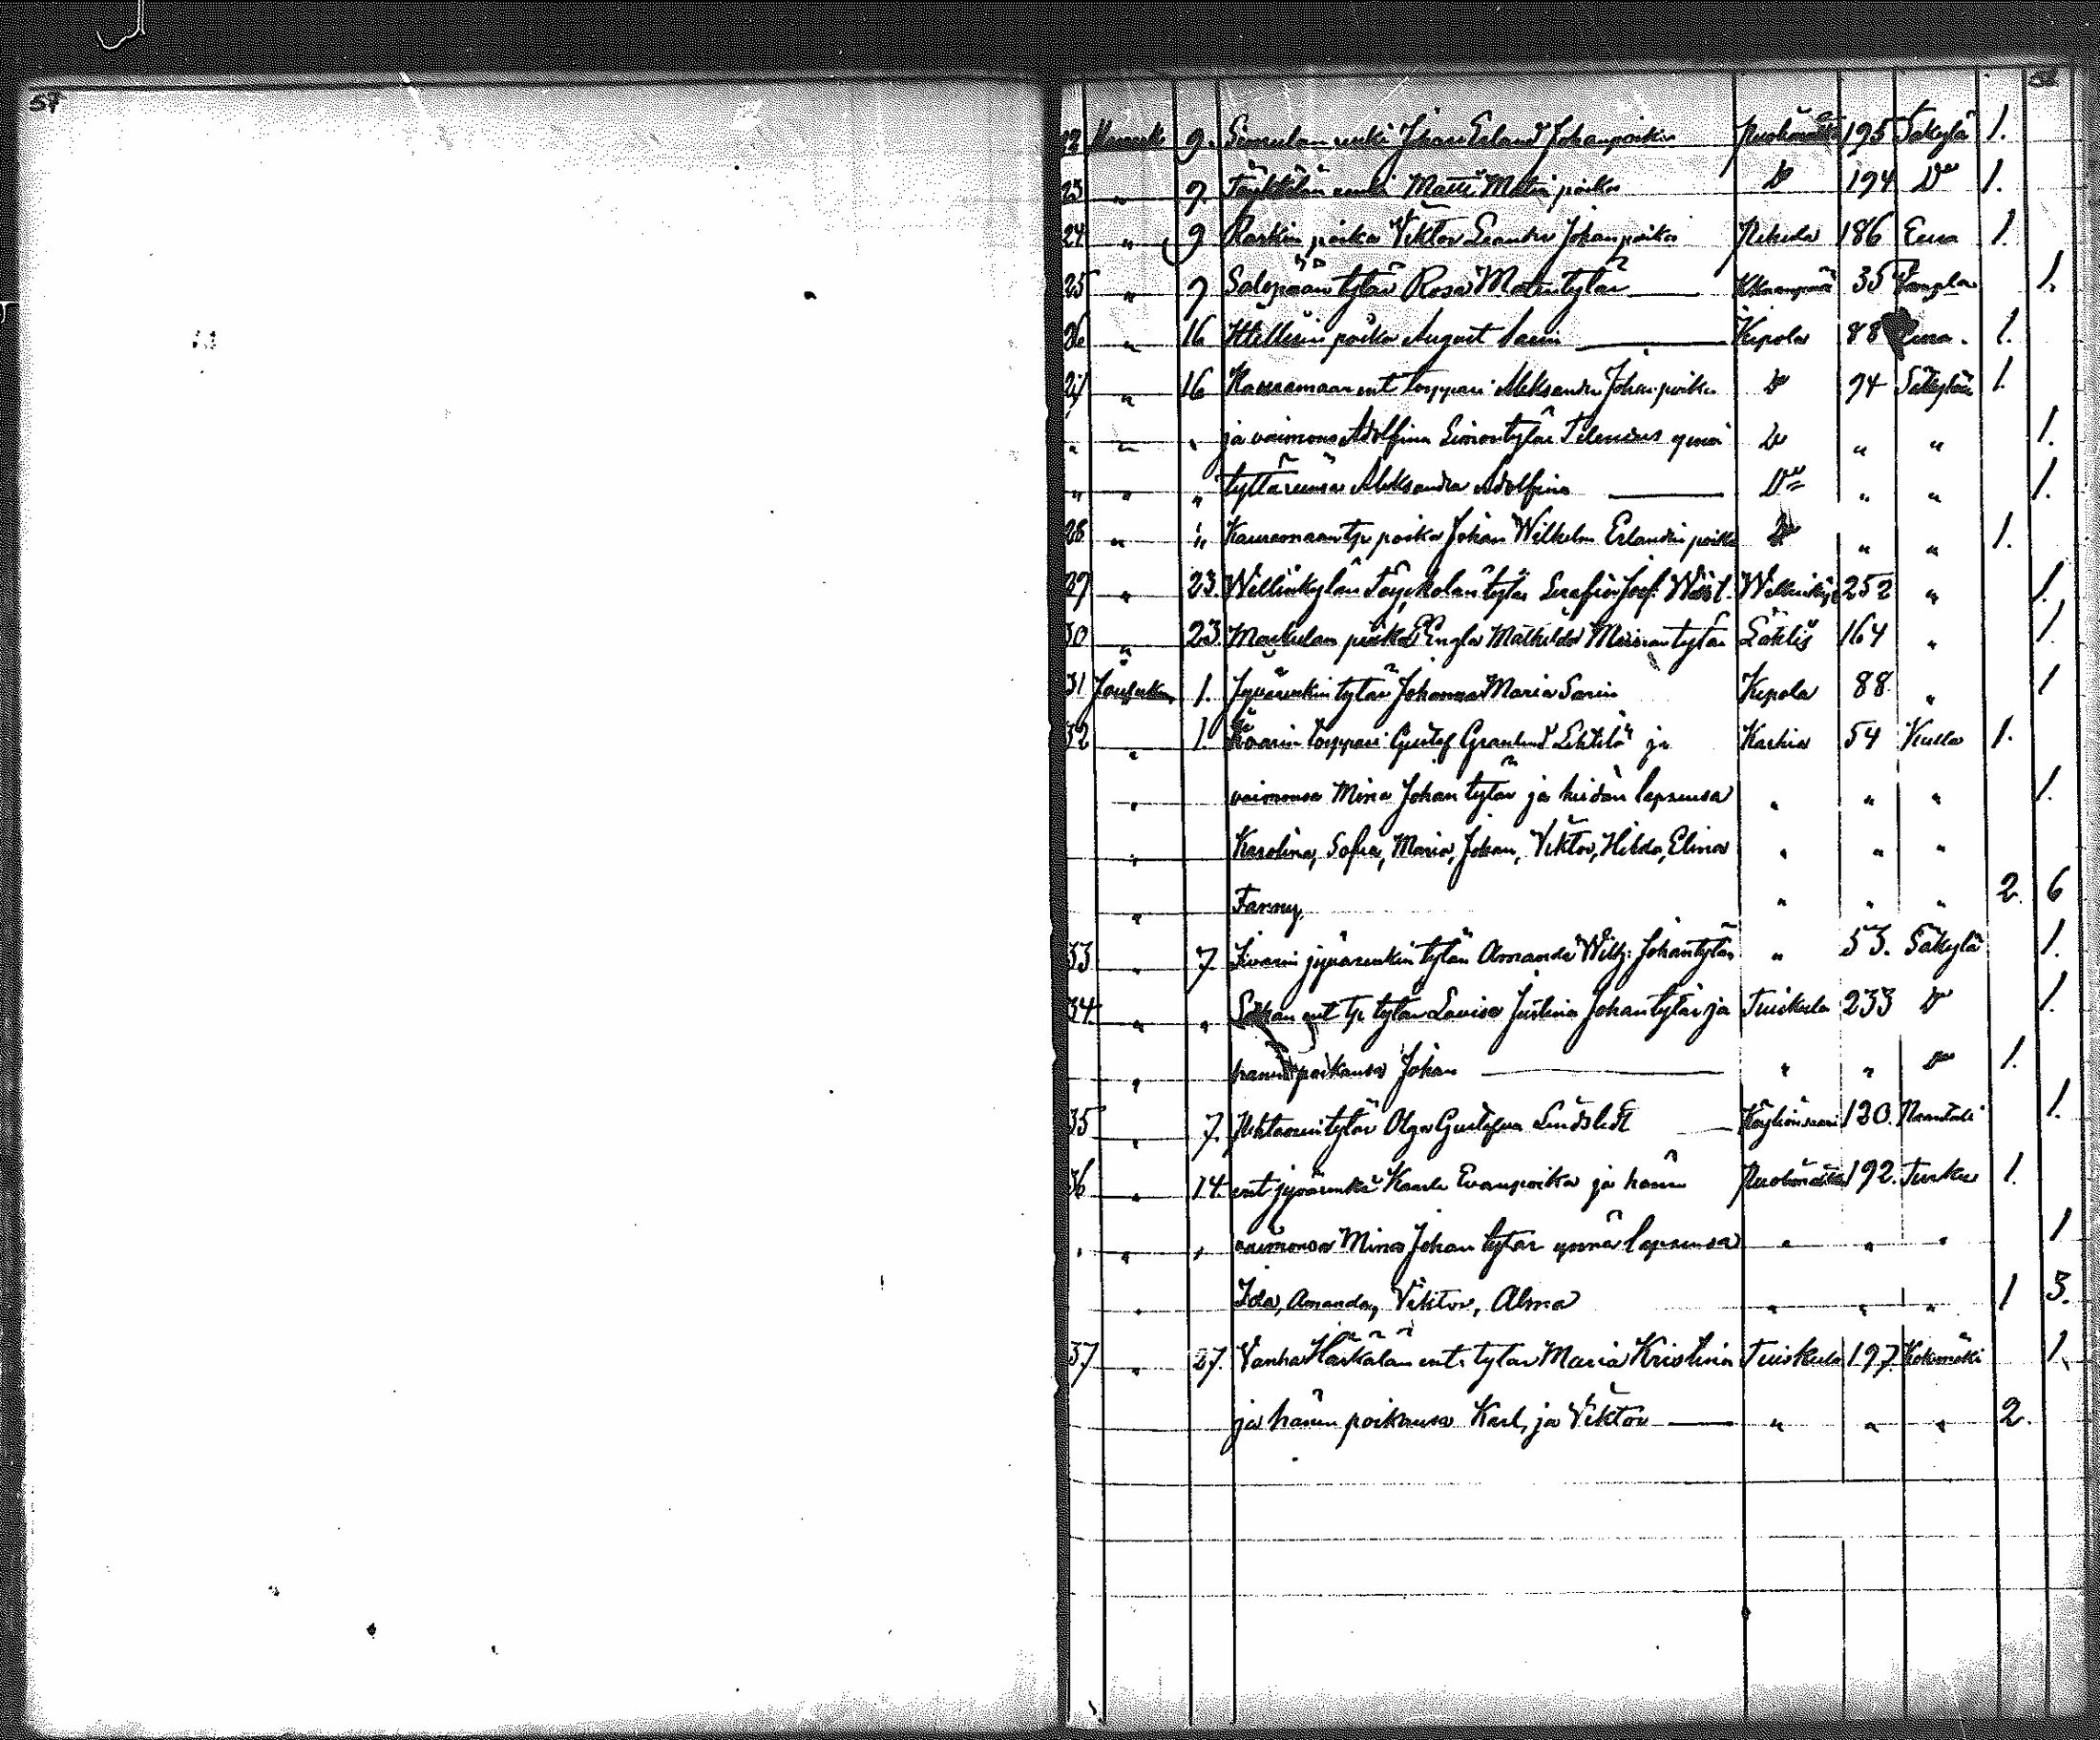 57
58
22 Marrask 9. Simulan renki Johan Erland Johanpoika 195 Säkylä 1.
23 " 9. renki Matti Matinpoika D:o 194 D:o 1.
24 " 9 Raskin poika Viktor Leander Johanpoika 186 Eura 1.
25 " 9 Salopään tytär Rosa Matintytär 35 1.
26 " 16 poika August Sarin Kepola 88 Eura. 1.
27 " 16 Kauramaan ent torppari Aleksander Johanpoika D:o 94 Säkylän 1.
" " " ja vaimons Adolfina Simontytär Tilenius ynnä D:o " " 1.
" " " tyttärensä Aleksandra Adolfina D:o " " 1.
28 " " Kauramaan tp poika Johan Wilhelm Erlandinpoika D:o " " 1.
29 " 23. Willinkylän tytär Josef. 252 " 1.
30 " 23. Engla Mathilda tytär 164 " 1.
31 Jouluk. 1. Jyvärenkin tytär Johanna Maria Sarin Kepola 88. " 1
32 " 1. torppari Gustaf Granlund Lehtelä ja Karhia 54 Kiulla 1.
" vaimonsa Mina Johantytär ja heidän lapsensa " " " 1.
" Karolina, Sofia, Maria, Johan, Viktor, Hilda, Elina " " "
" Fanny " " " 2. 6
33 " 7 jyvärenkin tytär Amanda Wilh: Johantytär " 53. Säkylä 1.
34 " " ent tp tytär Lovisa Justina Johantytär ja Tuiskula 233 D:o 1.
" hänen poikansa Johan " " D:o 1.
35 " 7. tytär Olga Gustafva Lindstedt Köyliönsaari 130. Naantali 1.
36 " 14 ent jyvärenki Kaarle Evanpoika ja hänen Ruohonsaari 192. Turku 1.
" " " vaimonsa Mina Johantytär ynnä lapsensa " " " 1
" Ida, Amanda, Viktor, Alma " " " 1 3.
37 " 27. Vanha Härkälän ent. tytär Maria Kristina Tuiskula 197. Kokemäki 1.
" ja hänen poikansa Karl, ja Viktor " " " 2.